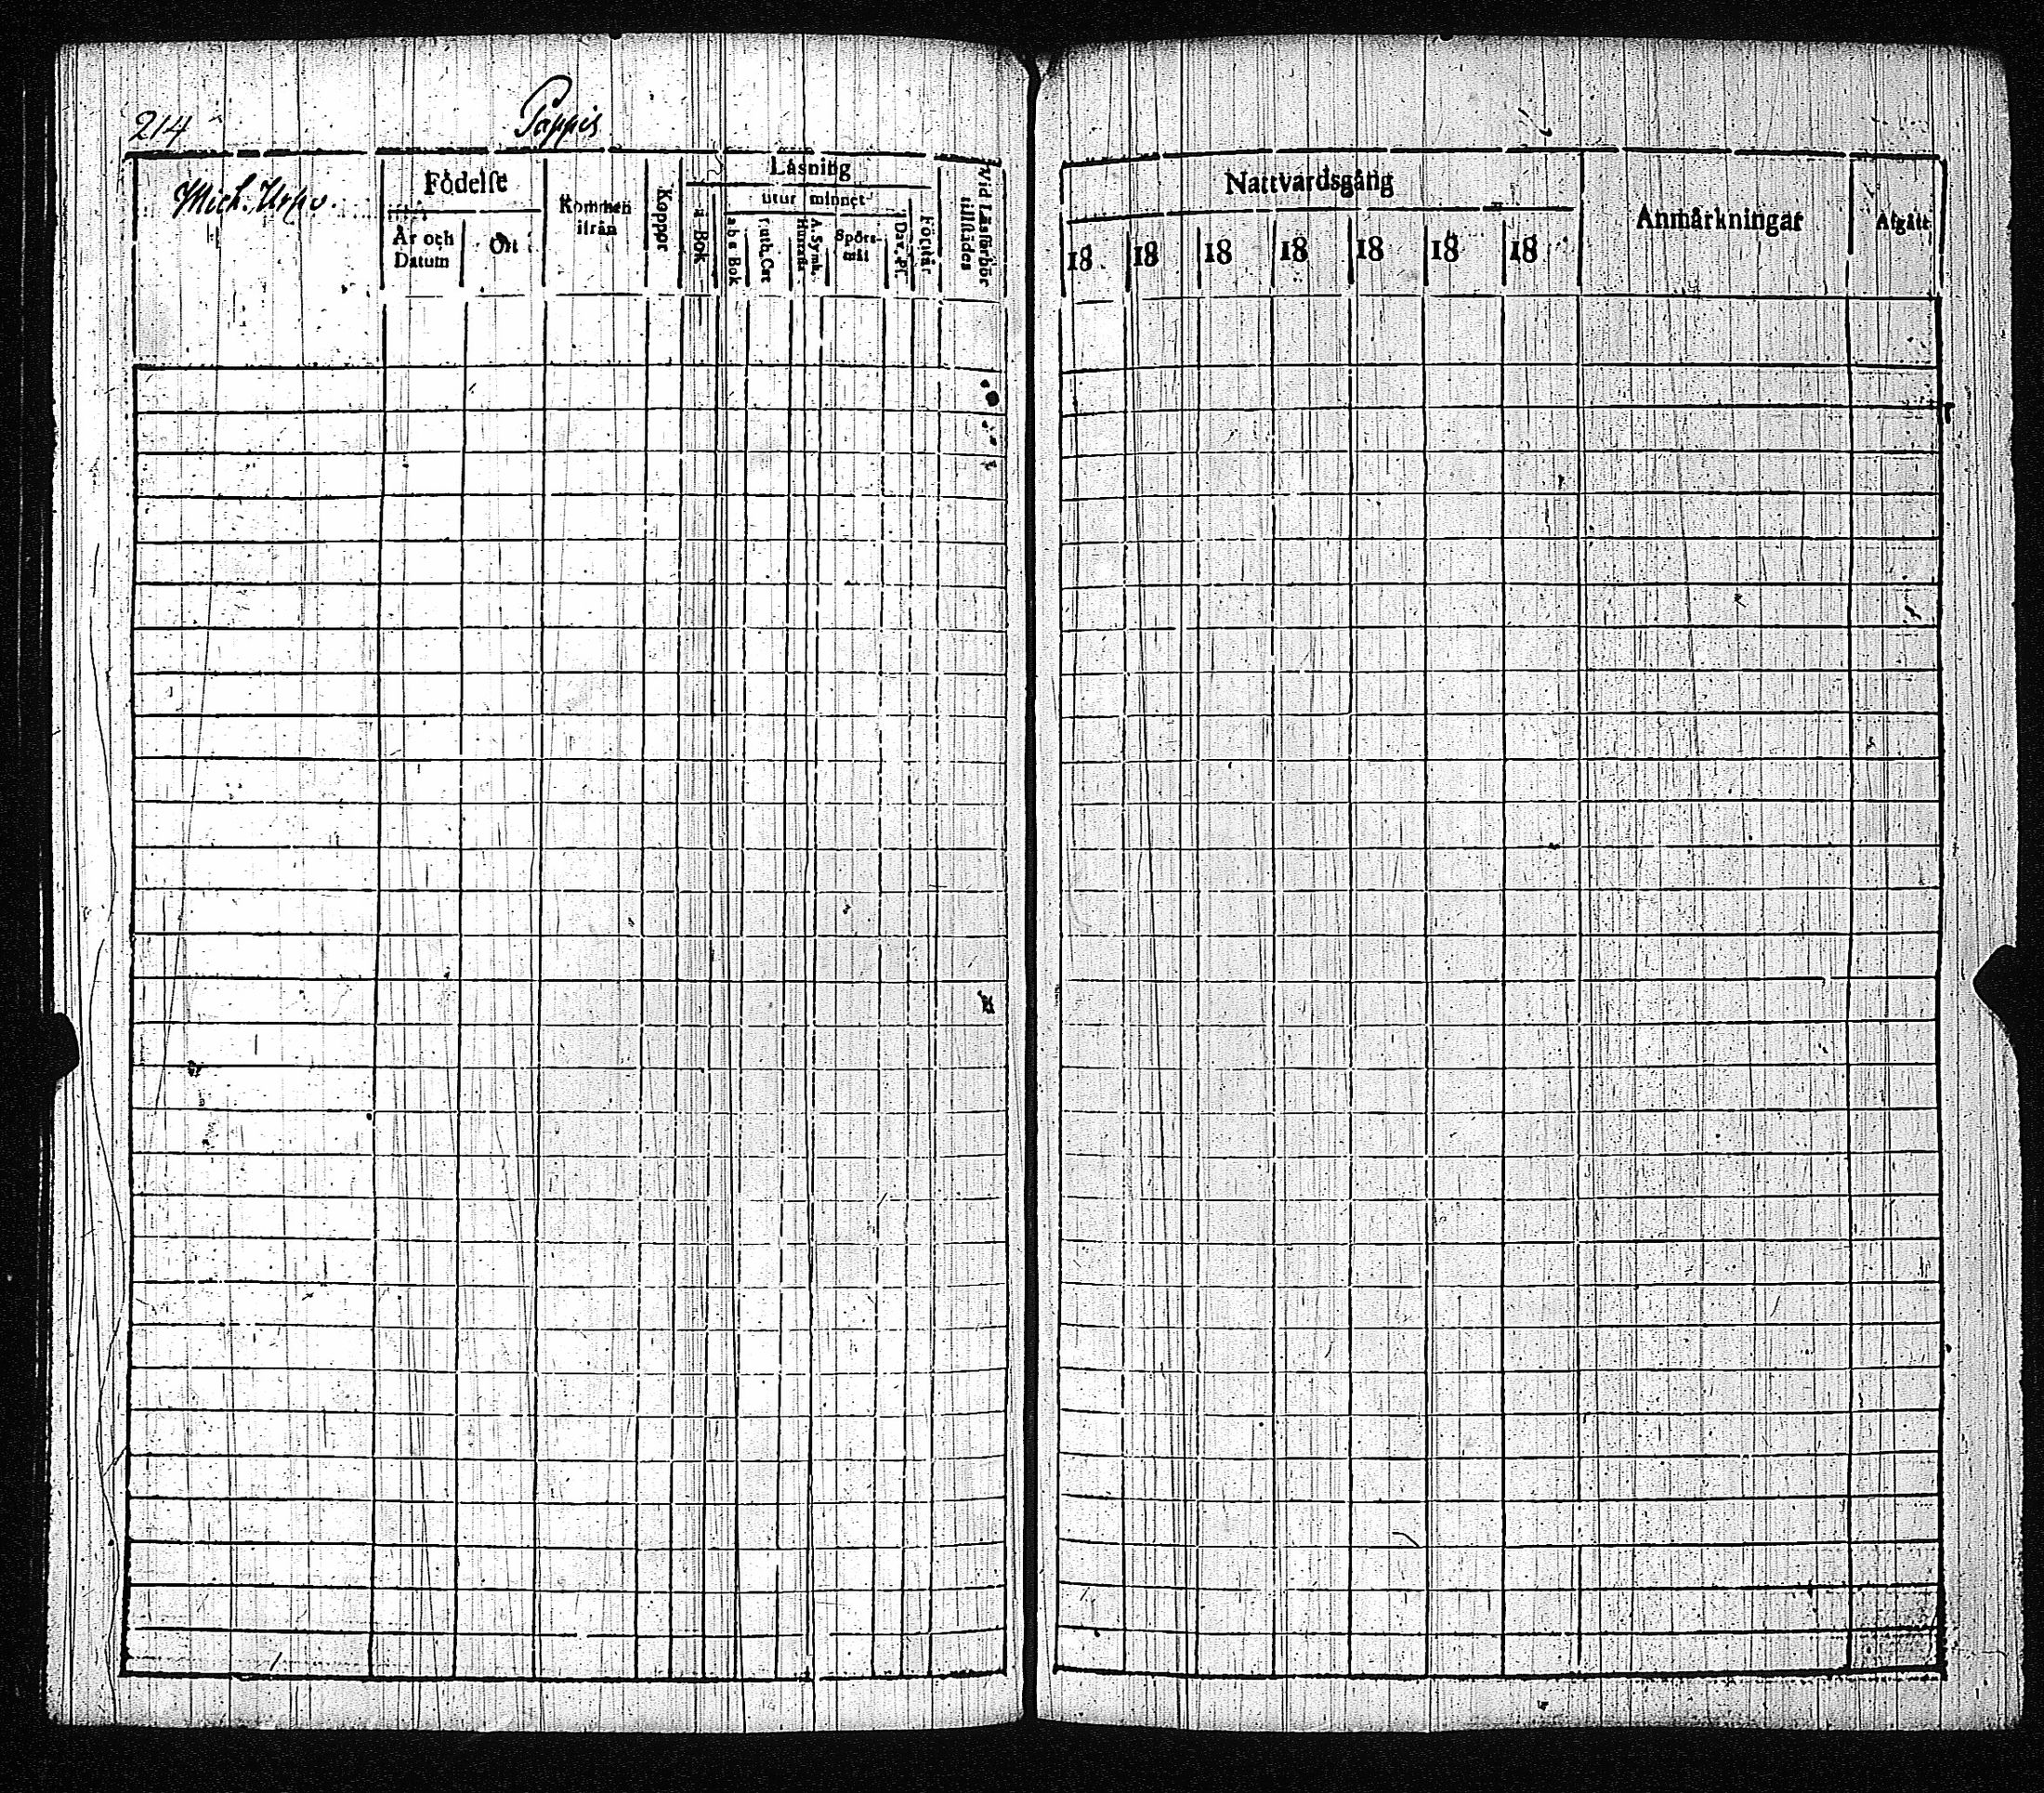 214
Pappis
Mich. Urpo.
Födelse
År och
Datum
Ort
Kommen
ifrån
Koppor
Läsning
i Bok
utur minnet
abc Bok
Luth. Cat
A. Symb.
Hustafla
Spörs-
mål
Dav. Ps.
Förstår
Vid Läsförhör
tillstädes
Nattvardsgång
18 18 18 18 18 18 18
Anmärkningar
Afgått